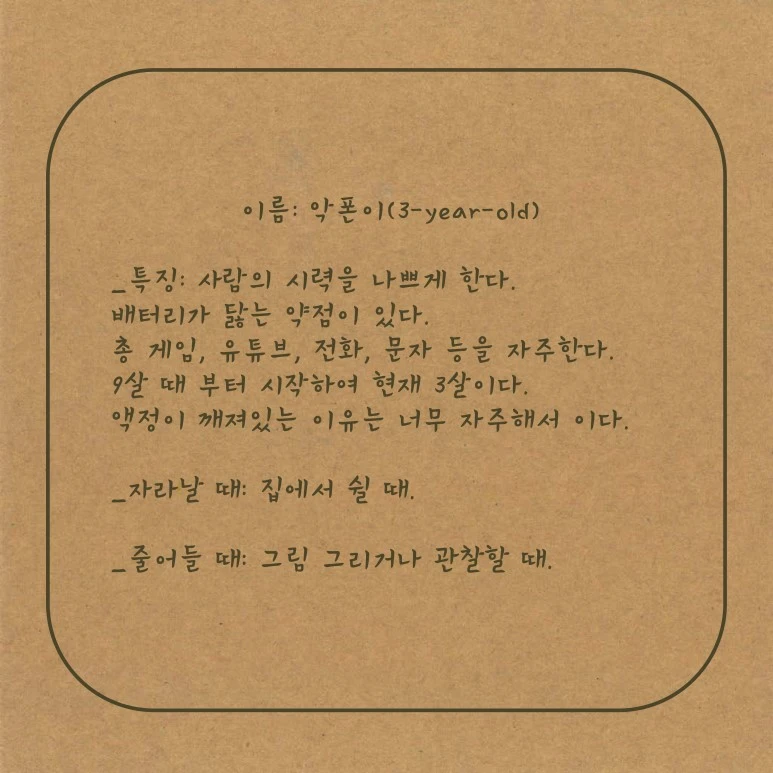 이름: 악폰이(3-year-old)
_특징: 사람의 시력을 나쁘게 한다.
배터리가 닳는 약점이 있다.
총 게임, 유튜브, 전화, 문자 등을 자주한다.
9살 때 부터 시작하여 현재 3살이다.
액정이 깨져있는 이유는 너무 자주해서 이다.
_자라날 때: 집에서 쉴 때.
_줄어들 때: 그림 그리거나 관찰할 때.